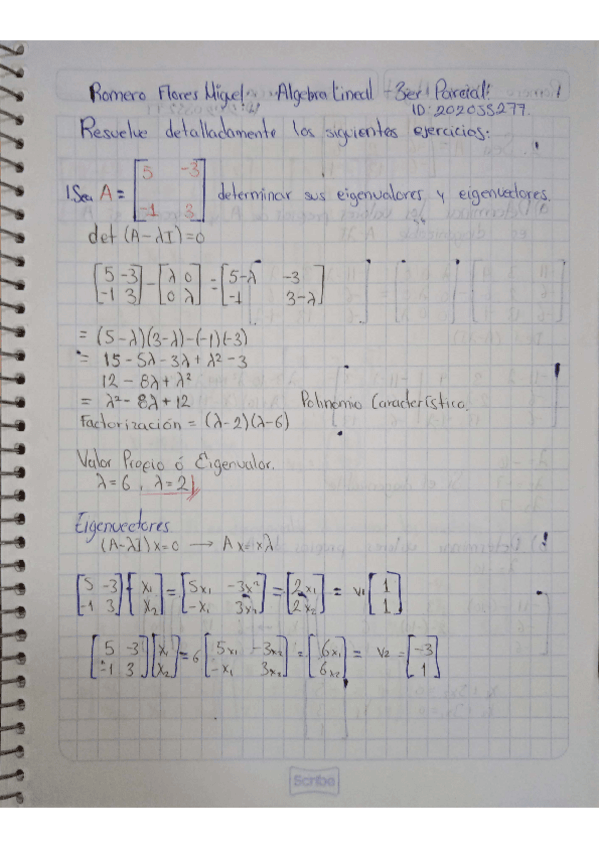 Romero Flores Miguel Algebra Lineal - 3er Parcial
ID: 202035277.
Resuelve detalladamente los siguientes ejercicios:
1. Sea A = [5 -3; -1 3] determinar sus eigenvalores y eigenvectores.
det (A-λI)=0
[5 -3; -1 3] - [λ 0; 0 λ] = [5-λ -3; -1 3-λ]
= (5-λ)(3-λ)-(-1)(-3)
= 15 - 5λ - 3λ + λ² - 3
12 - 8λ + λ²
= λ² - 8λ + 12 Polinomio Característico.
Factorización = (λ-2)(λ-6)
Valor Propio ó Eigenvalor.
λ=6, λ=2
Eigenvectores
(A-λI)x=0 → Ax=xλ
[5 -3; -1 3] [x₁; x₂] = [5x₁ -3x²; -x₁ 3x₂] = [2x₁; 2x₂] = v₁ [1; 1]
[5 -3; -1 3] [x₁; x₂] = 6 [5x₁ -3x₂; -x₁ 3x₂] = [6x₁; 6x₂] = v₂ = [-3; 1]
Scribe